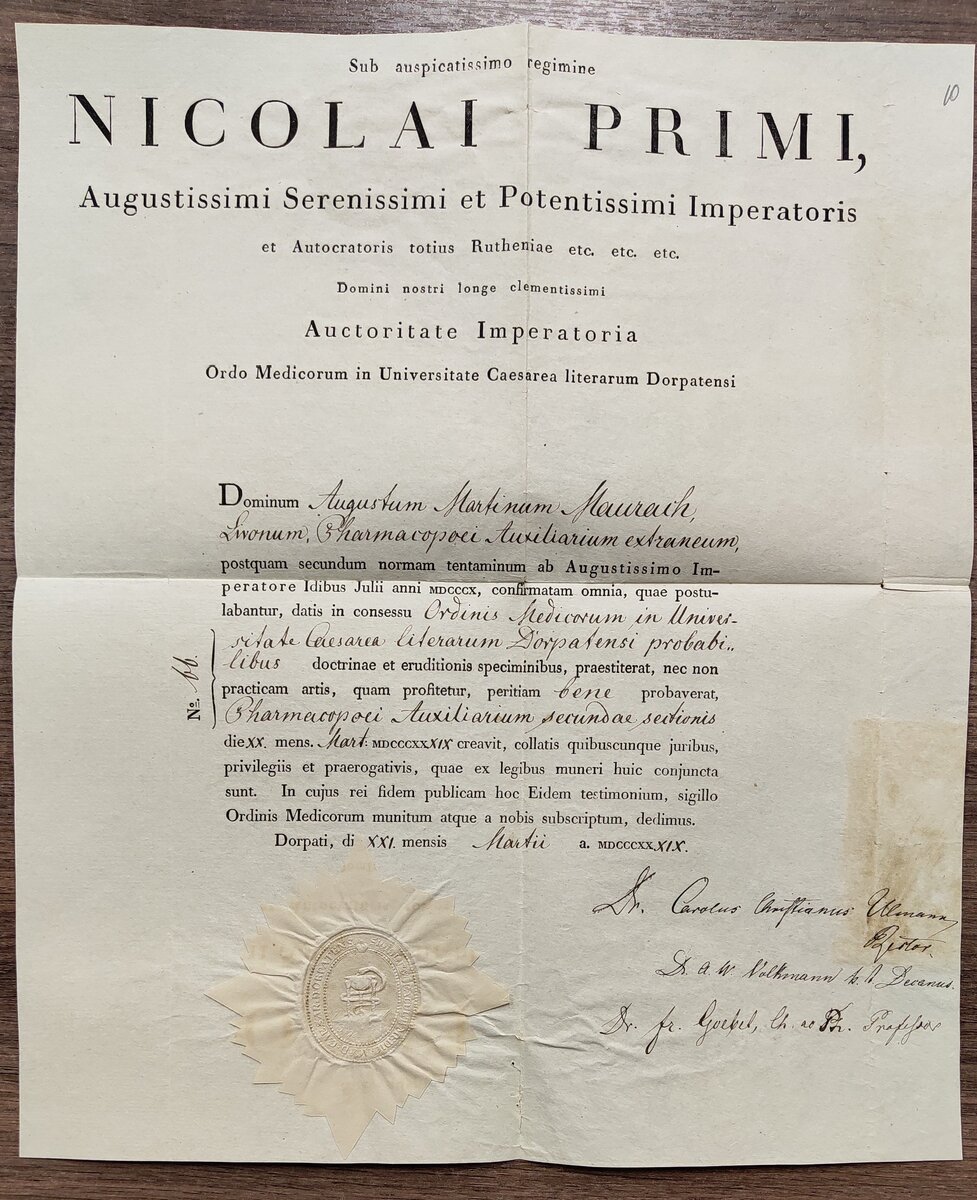 10
Sub auspicatissimo regimine
NICOLAI PRIMI,
Augustissimi Serenissimi et Potentissimi Imperatoris
et Autocratoris totius Rutheniae etc. etc. etc.
Domini nostri longe clementissimi
Auctoritate Imperatoria
Ordo Medicorum in Universitate Caesarea literarum Dorpatensi
Dominum Augustum Martinum Maurach,
Livonum, Pharmacopoei Auxiliarium extraneum,
postquam secundum normam tentaminum ab Augustissimo Im-
peratore Idibus Julii anni MDCCCX, confirmatam omnia, quae postu-
labantur, datis in consessu Ordinis Medicorum in Univer-
sitate Caesarea literarum Dorpatensi probabi-
libus doctrinae et eruditionis speciminibus, praestiterat, nec non
practicam artis, quam profitetur, peritiam bene probaverat,
Pharmacopoei Auxiliarium secundae sectionis
die XX. mens. Mart: MDCCCXXXIX creavit, collatis quibuscunque juribus,
privilegiis et praerogativis, quae ex legibus muneri huic conjuncta
sunt. In cujus rei fidem publicam hoc Eidem testimonium, sigillo
Ordinis Medicorum munitum atque a nobis subscriptum, dedimus.
Dorpati, di XXI. mensis Martii a. MDCCCXXXIX.
No. 66.
Dr. Carolus Christianus Ulmann
Rector.
Dr. A. W. Volkmann h. t. Decanus.
Dr. Fr. Goebel, Ch. ac Ph. Professor